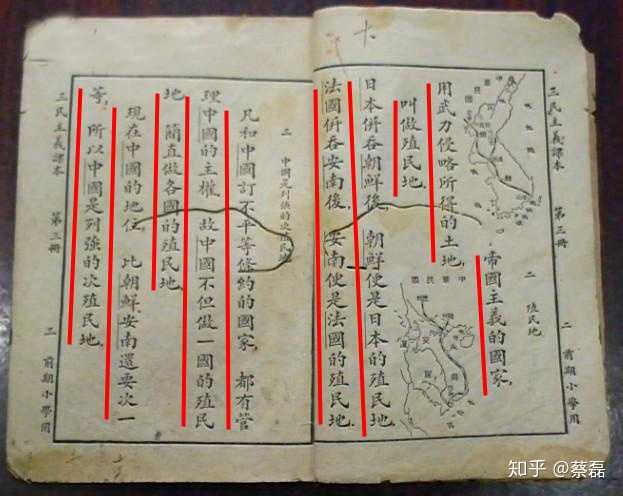 三民主義課本 第三冊 二 前期小學用
二 殖民地
帝國主義的國家,
用武力侵略所得的土地,
叫做殖民地.
日本併吞朝鮮後, 朝鮮便是日本的殖民地.
法國併吞安南後, 安南便是法國的殖民地.
中華民國
二 中國是列強的次殖民地
凡和中國訂不平等條約的國家, 都有管
理中國的主權, 故中國不但做一國的殖民
地, 簡直做各國的殖民地.
現在中國的地位, 比朝鮮、安南還要次一
等, 所以中國是列強的次殖民地.
三民主義課本 第三冊 二 前期小學用
知乎 @蔡磊